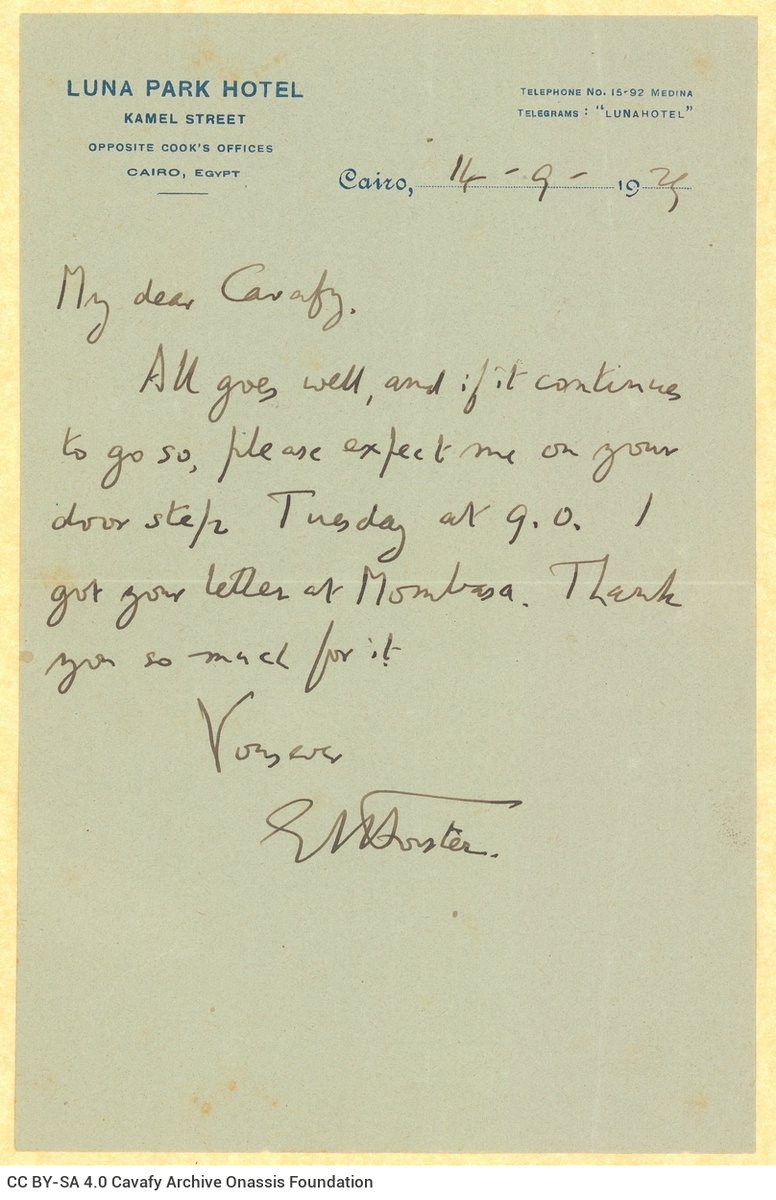 LUNA PARK HOTEL
KAMEL STREET
OPPOSITE COOK'S OFFICES
CAIRO, EGYPT
TELEPHONE No. 15-92 MEDINA
TELEGRAMS : "LUNAHOTEL"
Cairo, 14 - 9 - 1929
My dear Cavafy.
All goes well, and if it continues
to go so, please expect me on your
door step Tuesday at 9.0. I
got your letter at Mombasa. Thank
you so much for it
Yours ever
EMForster.
CC BY-SA 4.0 Cavafy Archive Onassis Foundation